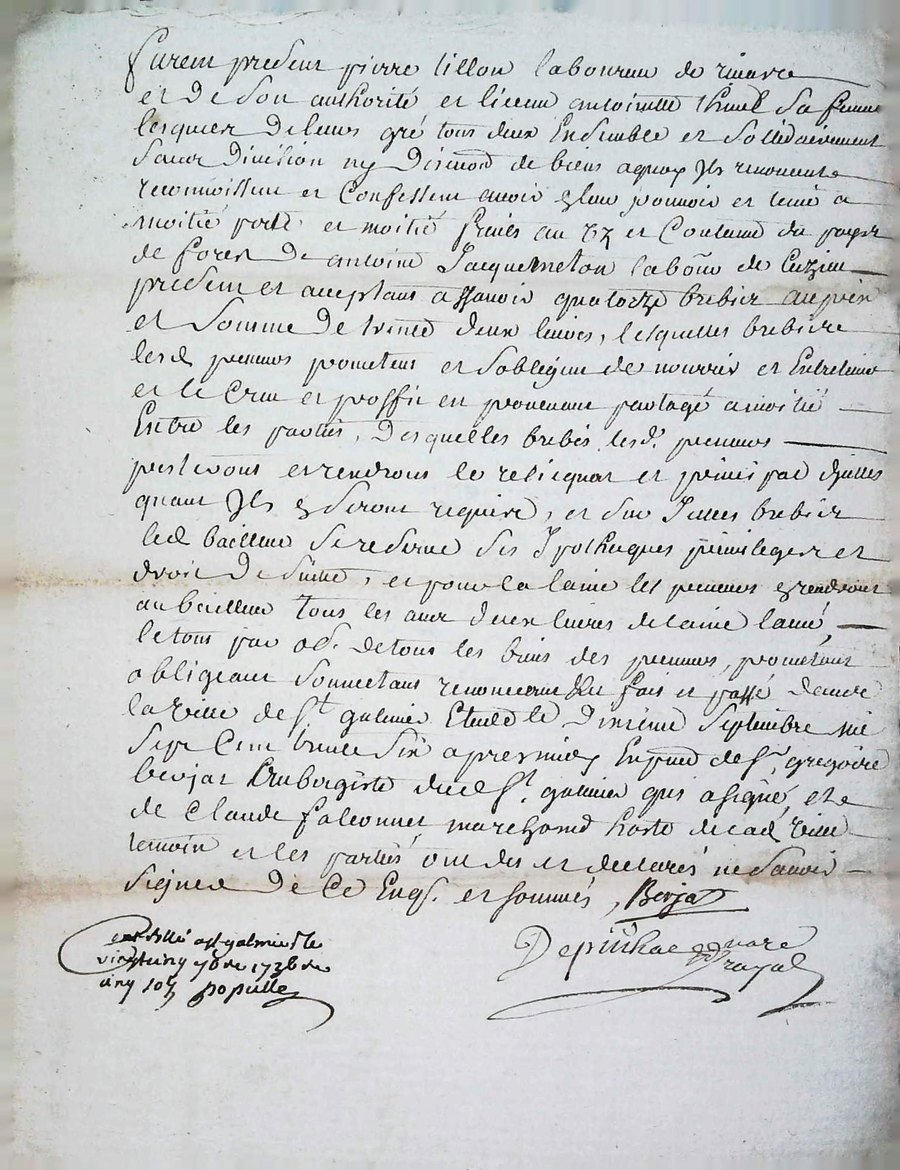 furent present pierre tillon laboureur de
et de son authorité et licence antoinette sa femme
lesquels de leurs gré tous deux Ensemble et sollidairement
sans division ny discution de biens aquoy Ils renoncent
reconnoissent et Confessent avoir eslou pouvoir et tenir a
moitié perte et moitié fruits au et Coutume du pays
de forest de antoine Jacquemeton labour de Cuzieu
present et acceptant a sçavoir quatorze brebier au prix
et somme de trente deux livres, lesquelles brebier
lesd preneurs prometent et sobligent de nourrir et Entretenir
et le Crue et proffit en provenant partagé a moitié
Entre les parties, desquelles brebis lesd. preneurs
et rendront le relicquat et principal dicelles
quant Ils seront require, et sur Icelles brebier
led bailleur se reserve ses Ipotheques privileges et
droit de suitte, et pour la laine les preneurs rendront
au bailleur tous les ans deux livres de laine lavé,
le tout par ob. de tous les biens des preneurs, prometant
obligeant soumetant renonceant &c fait et passé dans
la ville de st galmier Etude le dixieme septembre mil
sept Cent trente six apres midy En pnce de sr. gregoire
berjat Aubergiste dud st. galmier qui a signé, et
de Claude falconnet marchand hoste de lad ville
temoin et les parties ont dit et declarés ne sçavoir
signer de Ce Enqs. et sommés, Berjat
Depinhac nore
Royal
Controllé a st galmier le
vingt cinq 7bre 1736 de
cinq sols populle